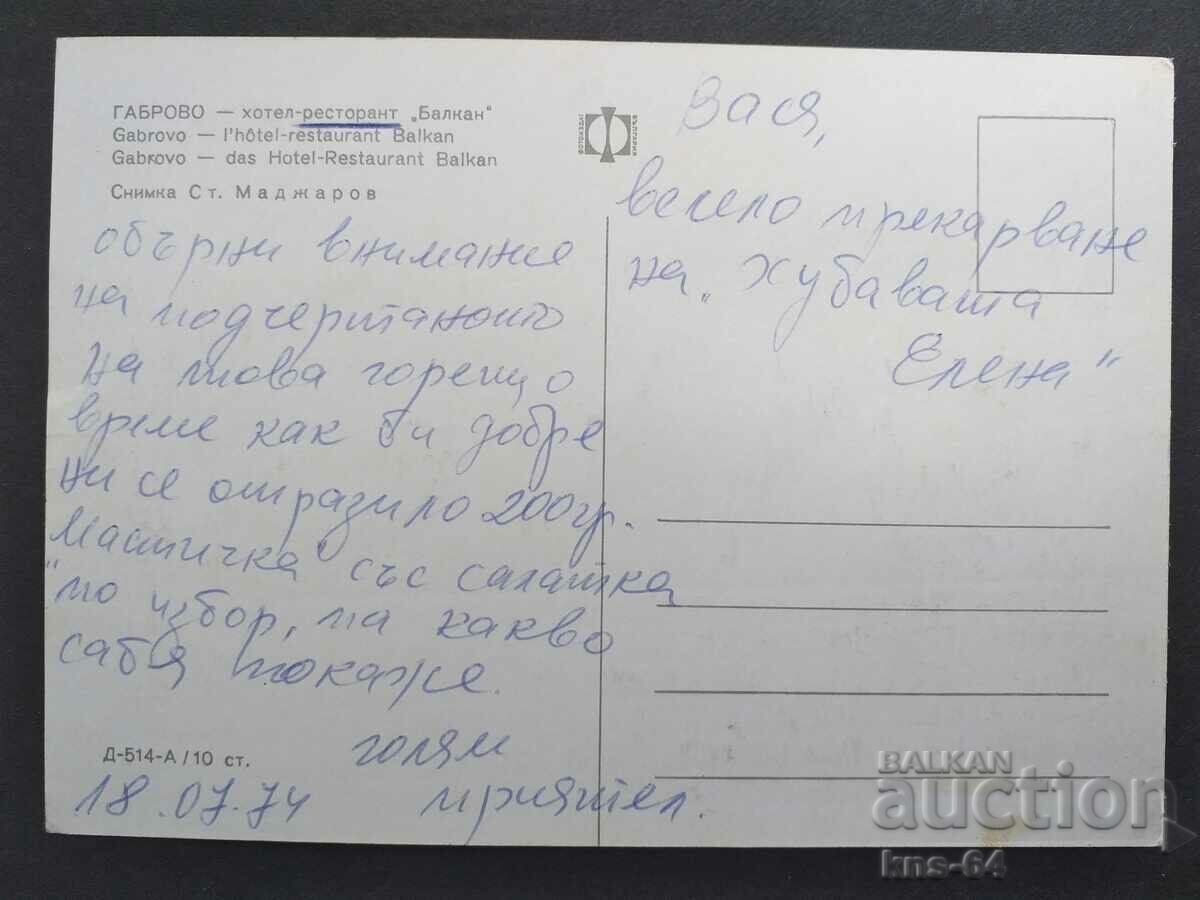 ГАБРОВО — хотел-ресторант „Балкан“
Gabrovo — l'hôtel-restaurant Balkan
Gabrovo — das Hotel-Restaurant Balkan
Снимка Ст. Маджаров
ФОТОИЗДАТ
БЪЛГАРИЯ
обърни внимание
на подчертаното
на това горещо
време как би добре
ни се отразило 200гр.
"Мастичка" със салатка
по избор, па какво
сабя покаже.
голям
приятел.
Д-514-А/10 ст.
18.07.74
Вася,
весело прекарване
на „Хубавата
Елена“
BALKAN
auction
kns-64